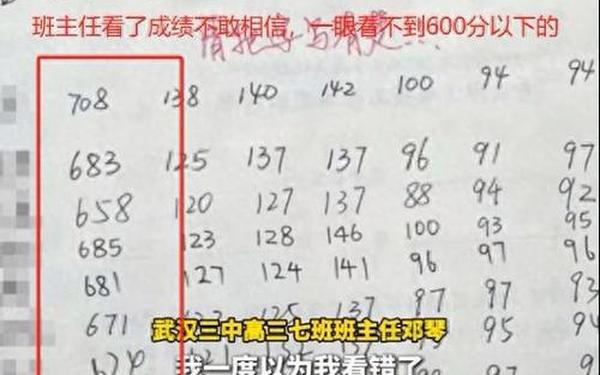 班主任看了成绩不敢相信，一眼看不到600分以下的
708 138 140 142 100 94 94
683 125 137 137 96 91 97
658 120 127 137 88 94 92
685 123 128 146 100 93 95
681 127 124 141 96 97 96
671 137 97 97 93
95 94
武汉三中高三七班班主任邓琴
我一度以为我看错了